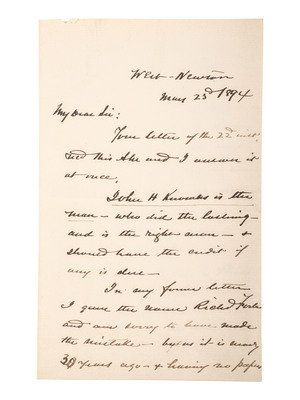 West-Newton
May 23d 1894
My Dear Sir:
Your letter of the 22 inst.
and I answer it
at once.
John H Knowles is the
man - who did the
and is the right man - &
should have the credit if
any is due -
In my former letter
I gave the name Richd
and am sorry to have made
the mistake - but as it is nearly
30 years ago - & having no papers